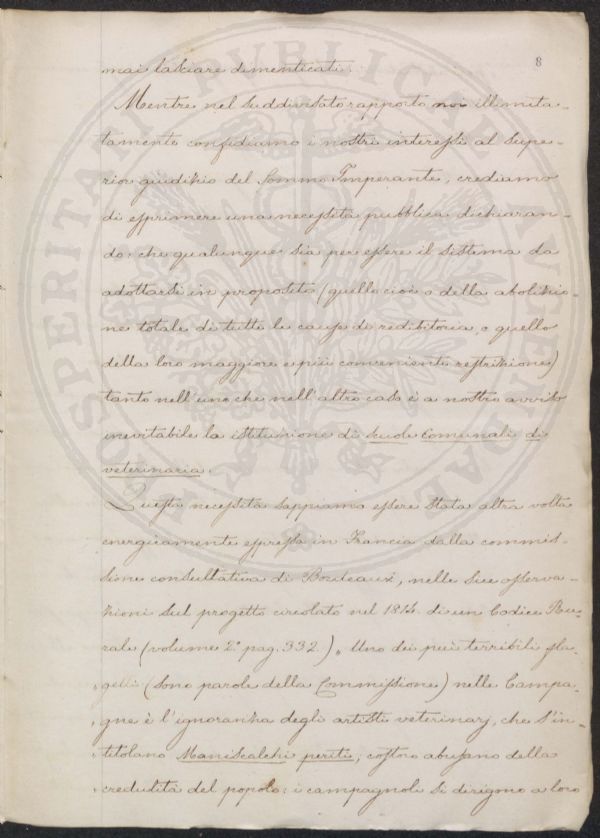 8
mai lasciare dimenticati.
Mentre nel suddivisato rapporto noi illimita-
tamente confidiamo i nostri interessi al supe-
rior giudizio del Sommo Imperante, crediamo
di esprimere una necessità pubblica dichiaran-
do: che qualunque sia per essere il sistema da
adottarsi in proposito (quello cioè o della abolizio-
ne totale di tutte le cause di redibitoria, o quello
della loro maggiore e più conveniente restrizione)
tanto nell'uno che nell'altro caso è a nostro avviso
inevitabile la istituzione di scuole Comunali di
veterinaria.
Questa necessità sappiamo essere stata altra volta
energicamente espressa in Francia dalla commis-
sione consultativa di Bordeaux, nelle sue osserva-
zioni sul progetto circolato nel 1814. di un Codice Ru-
rale (volume 2° pag. 332.) „ Uno dei più terribili fla-
„ gelli (sono parole della Commissione) nelle Campa-
„ gne è l'ignoranza degli artisti veterinarj, che s'in-
„ titolano Maniscalchi periti; costoro abusano della
„ credulità del popolo: i campagnoli si dirigono a loro
PROSPERITATI PVBLICAE AVGENDAE